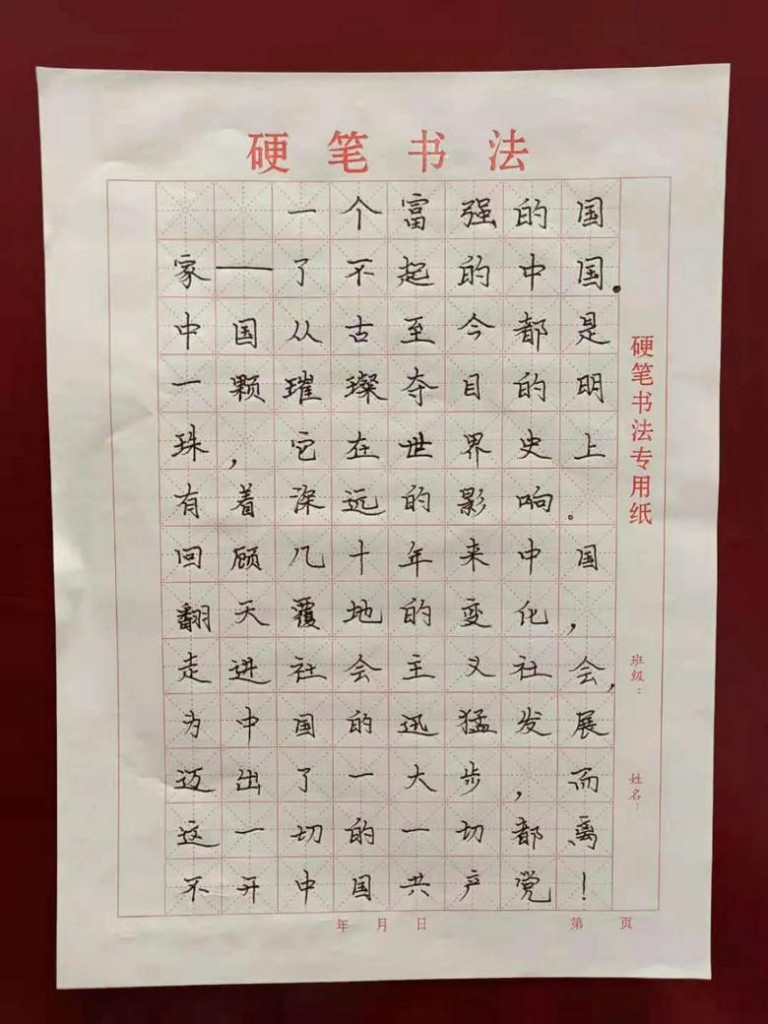 硬笔书法
一个富强的国
家——了不起的中国。
中国从古至今都是
一颗璀璨夺目的明
珠，它在世界史上
有着深远的影响。
回顾几十年来中国
翻天覆地的变化，
走进社会主义社会，
为中国的迅猛发展
迈出了一大步，而
这一切的一切都离
不开中国共产党！
硬笔书法专用纸
班级：
姓名：
年 月 日
第 页